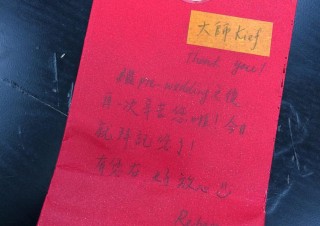 大師 Kief
Thank you!
繼 pre-wedding 之後
再一次辛苦您啦！今日
就拜託您了！
有您在 好放心